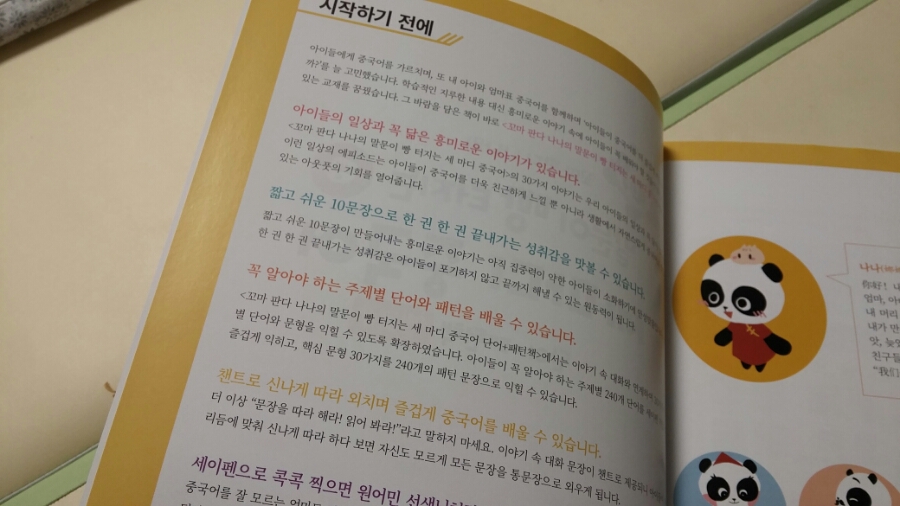 시작하기 전에
아이들에게 중국어를 가르치며, 또 내 아이와 엄마표 중국어를 함께하며 '아이들이 중국어를
까?'를 늘 고민했습니다. 학습적인 지루한 내용 대신 흥미로운 이야기 속에 아이들이
있는 교재를 꿈꿨습니다. 그 바람을 담은 책이 바로 <꼬마 판다 나나의 말문이 빵 터지는 세 마디
아이들의 일상과 꼭 닮은 흥미로운 이야기가 있습니다.
<꼬마 판다 나나의 말문이 빵 터지는 세 마디 중국어>의 30가지 이야기는 우리 아이들의 일상과
이런 일상의 에피소드는 아이들이 중국어를 더욱 친근하게 느낄 뿐 아니라 생활에서 자연스럽게
있는 아웃풋의 기회를 열어줍니다.
짧고 쉬운 10문장으로 한 권 한 권 끝내가는 성취감을 맛볼 수 있습니다.
짧고 쉬운 10문장이 만들어내는 흥미로운 이야기는 아직 집중력이 약한 아이들이 소화하기에
한 권 한 권 끝내가는 성취감은 아이들이 포기하지 않고 끝까지 해낼 수 있는 원동력이 됩니다.
꼭 알아야 하는 주제별 단어와 패턴을 배울 수 있습니다.
<꼬마 판다 나나의 말문이 빵 터지는 세 마디 중국어 단어+패턴책>에서는 이야기 속 대화와 연계하여
별 단어와 문형을 익힐 수 있도록 확장하였습니다. 아이들이 꼭 알아야 하는 주제별 240개 단어를
즐겁게 익히고, 핵심 문형 30가지를 240개의 패턴 문장으로 익힐 수 있습니다.
챈트로 신나게 따라 외치며 즐겁게 중국어를 배울 수 있습니다.
더 이상 "문장을 따라 해라! 읽어 봐라!"라고 말하지 마세요. 이야기 속 대화 문장이 챈트로 제공되니
리듬에 맞춰 신나게 따라 하다 보면 자신도 모르게 모든 문장을 통문장으로 외우게 됩니다.
세이펜으로 콕콕 찍으면 원어민
중국어를 잘 모르는
나나
你好! 내
엄마, 아
내 머리
내가 만
맛, 늦잠
친구들
"我们